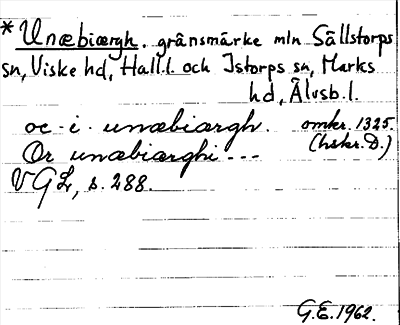 *Unæbiærgh. gränsmärke mln Sällstorps
sn, Viske hd, Hall.l. och Istorps sn, Marks
hd, Älvsb.l.
oc · i · unæbiærgh. omkr. 1325.
Or unæbiærghi --- (hskr. D.)
VGL, s. 288.
G.E. 1962.